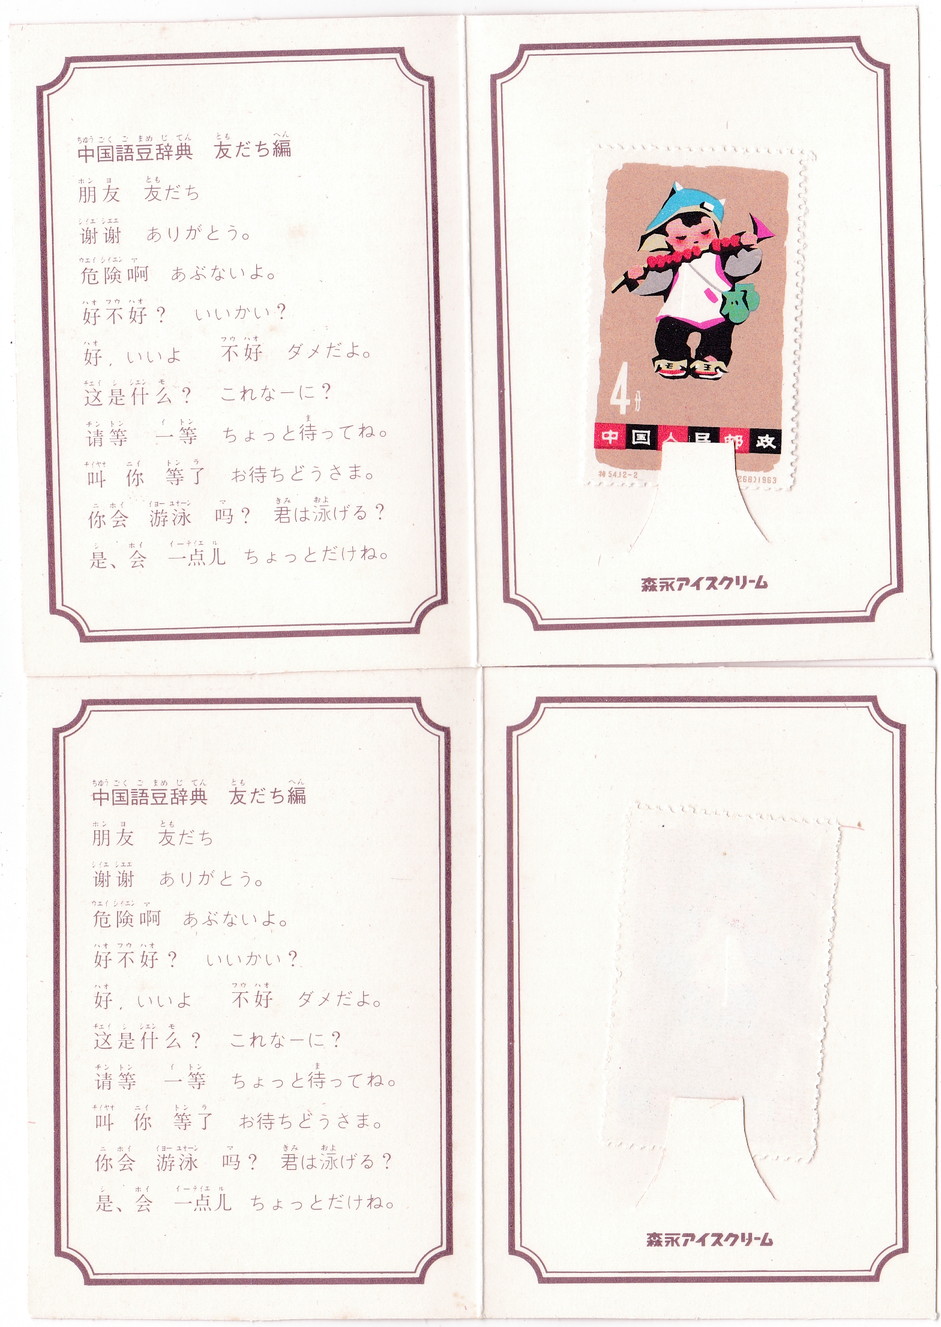 中国語豆辞典　友だち編
朋友　友だち
谢谢　ありがとう。
危険啊　あぶないよ。
好不好？　いいかい？
好，いいよ　不好　ダメだよ。
这是什么？　これなーに？
请等　一等　ちょっと待ってね。
叫 你 等了　お待ちどうさま。
你会 游泳 吗？　君は泳げる？
是、会　一点儿　ちょっとだけね。
4分
中国人民邮政
特54.12-2
1963
森永アイスクリーム
中国語豆辞典　友だち編
朋友　友だち
谢谢　ありがとう。
危険啊　あぶないよ。
好不好？　いいかい？
好，いいよ　不好　ダメだよ。
这是什么？　これなーに？
请等　一等　ちょっと待ってね。
叫 你 等了　お待ちどうさま。
你会 游泳 吗？　君は泳げる？
是、会　一点儿　ちょっとだけね。
森永アイスクリーム